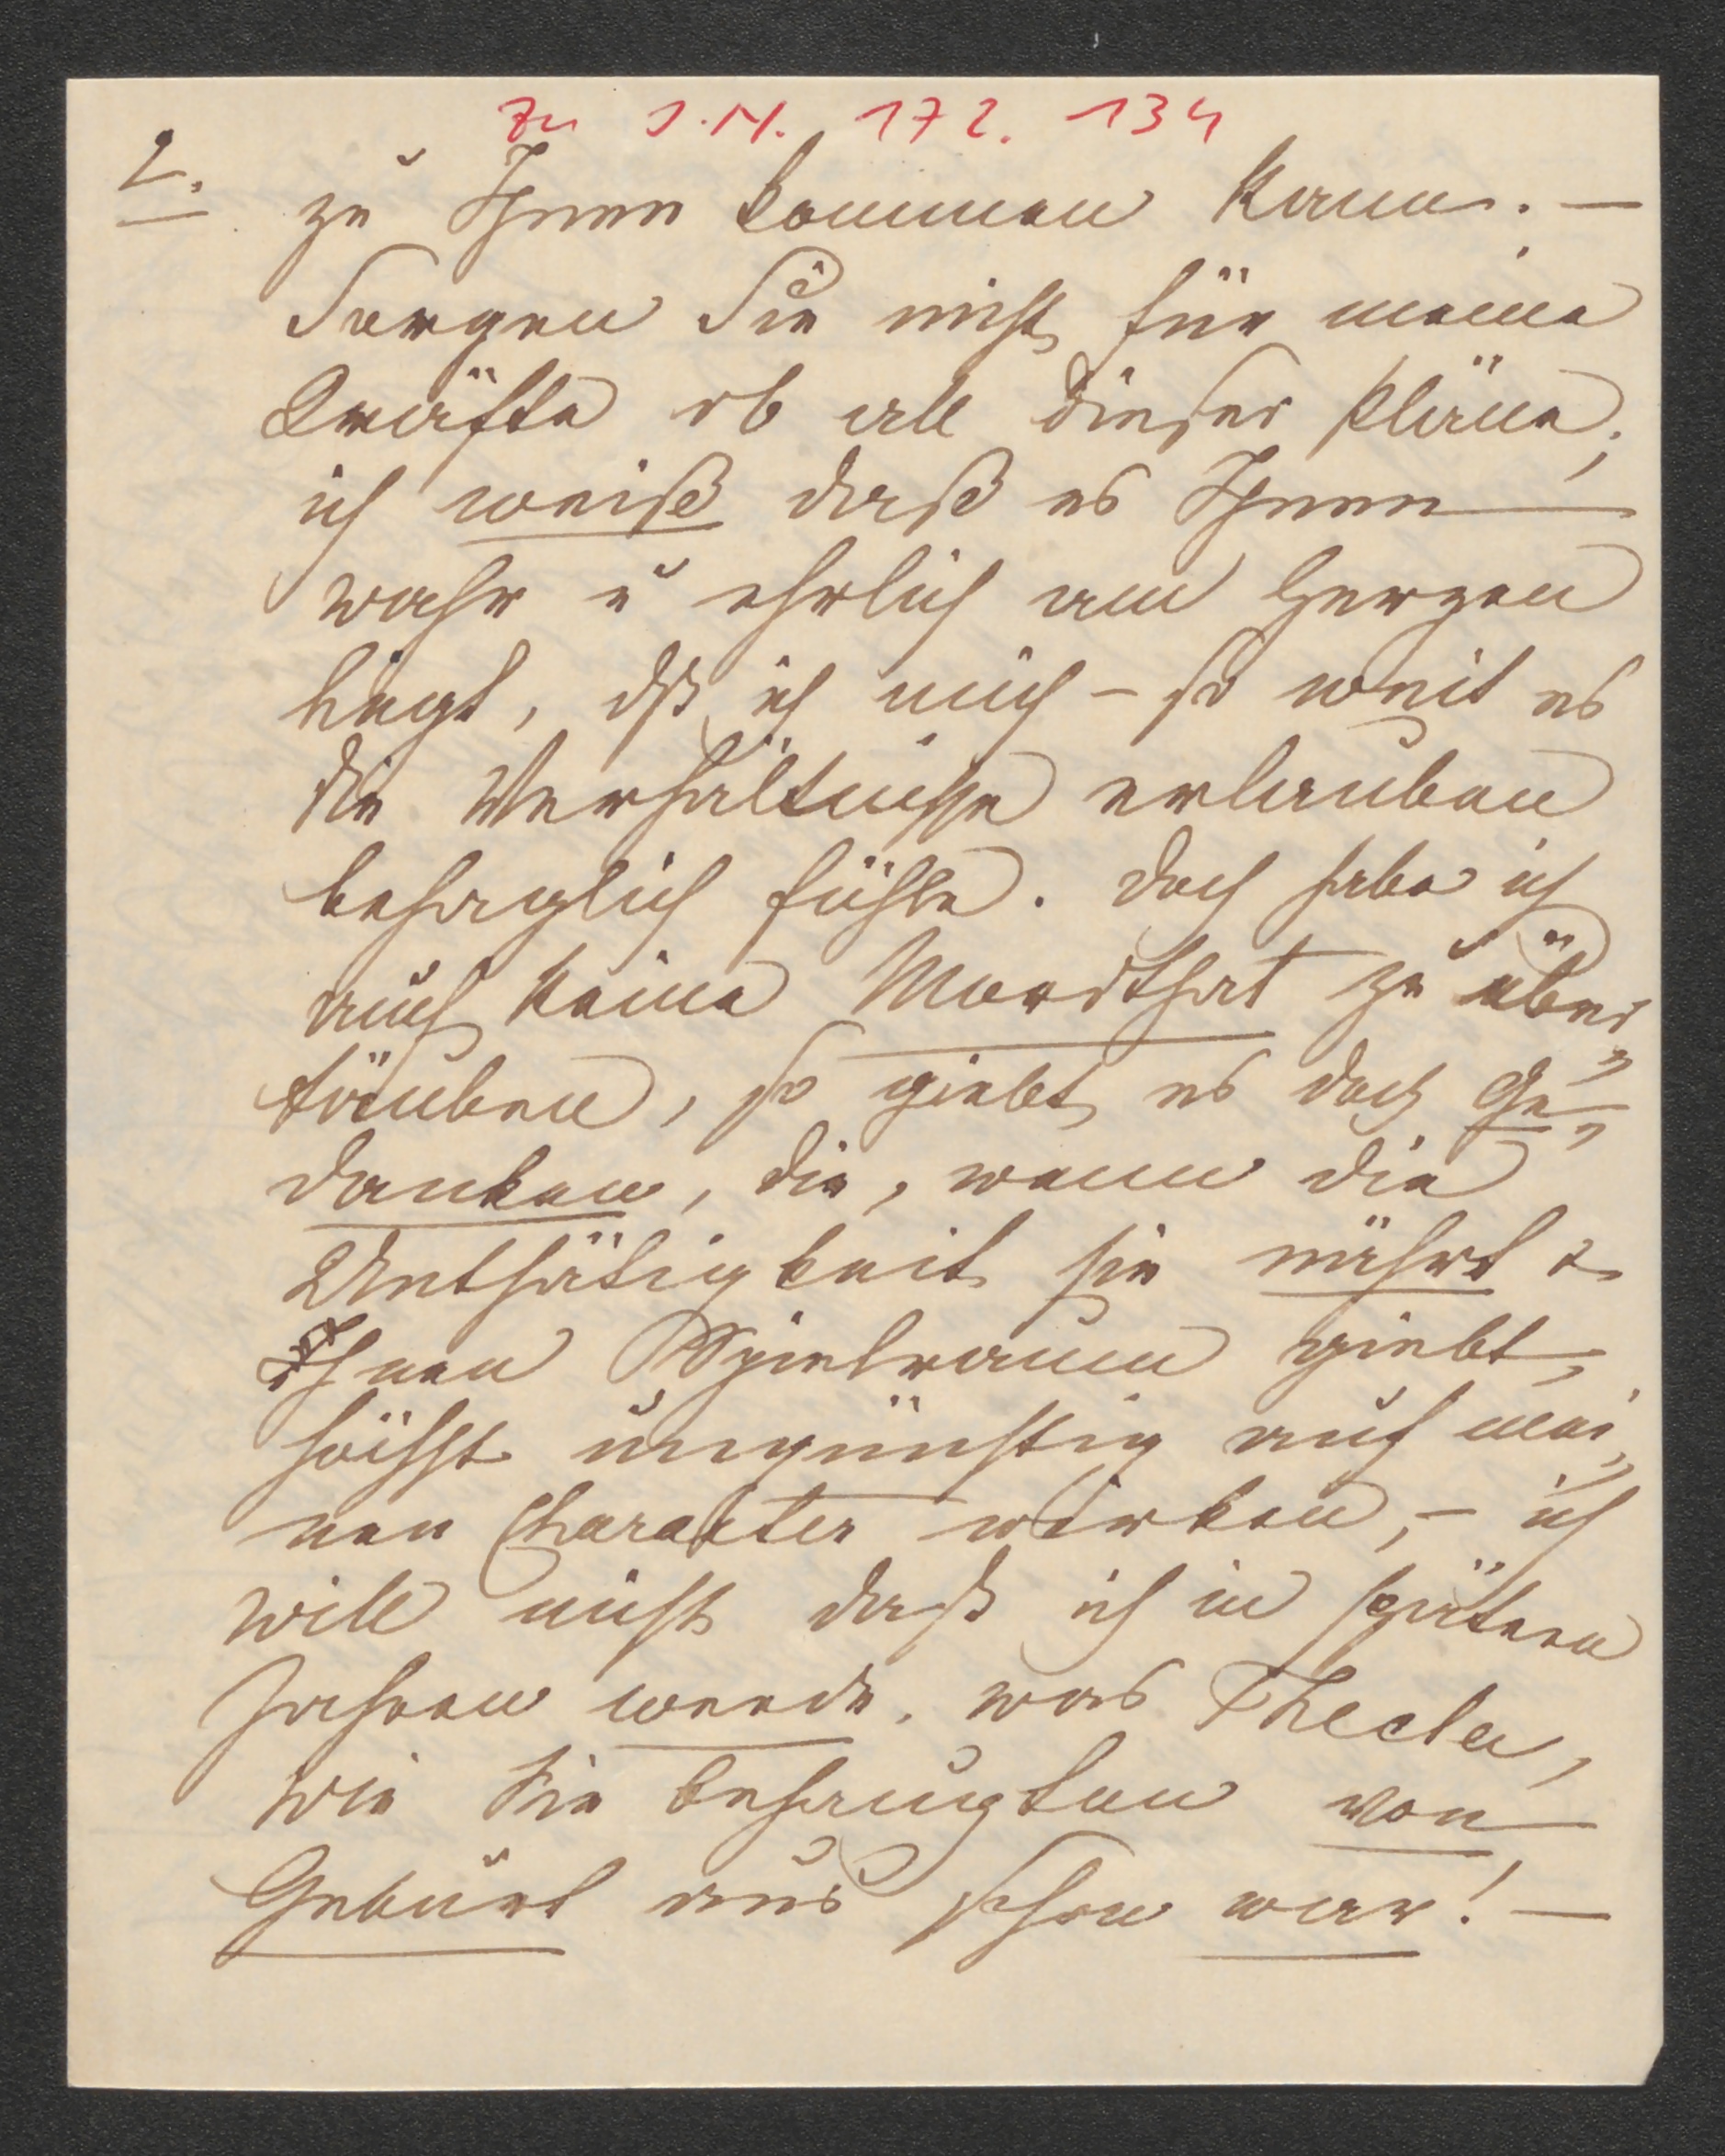 Zu I.N. 172.134
2. zu Ihnen kommen kann. —
Sorgen Sie nicht für meine
Kräfte ob all dieser Pläne;
ich weiß daß es Ihnen
wahr u ehrlich am Herzen
liegt, dß ich mich – so weit es
die Verhältnisse erlauben
behaglich fühle. Doch habe ich
auch keine Mordthat zu über„
täuben, so giebt es doch Ge„
danken, die, wenn die
Unthätigkeit sie nährt &
Ihnen Spielraum giebt,
höchst ungünstig auf mei„
nen Charakter wirken, – ich
will nicht daß ich in spätern
Jahren werde, was Thecla,
wie Sie behaupten von
Geburt aus schon war! —